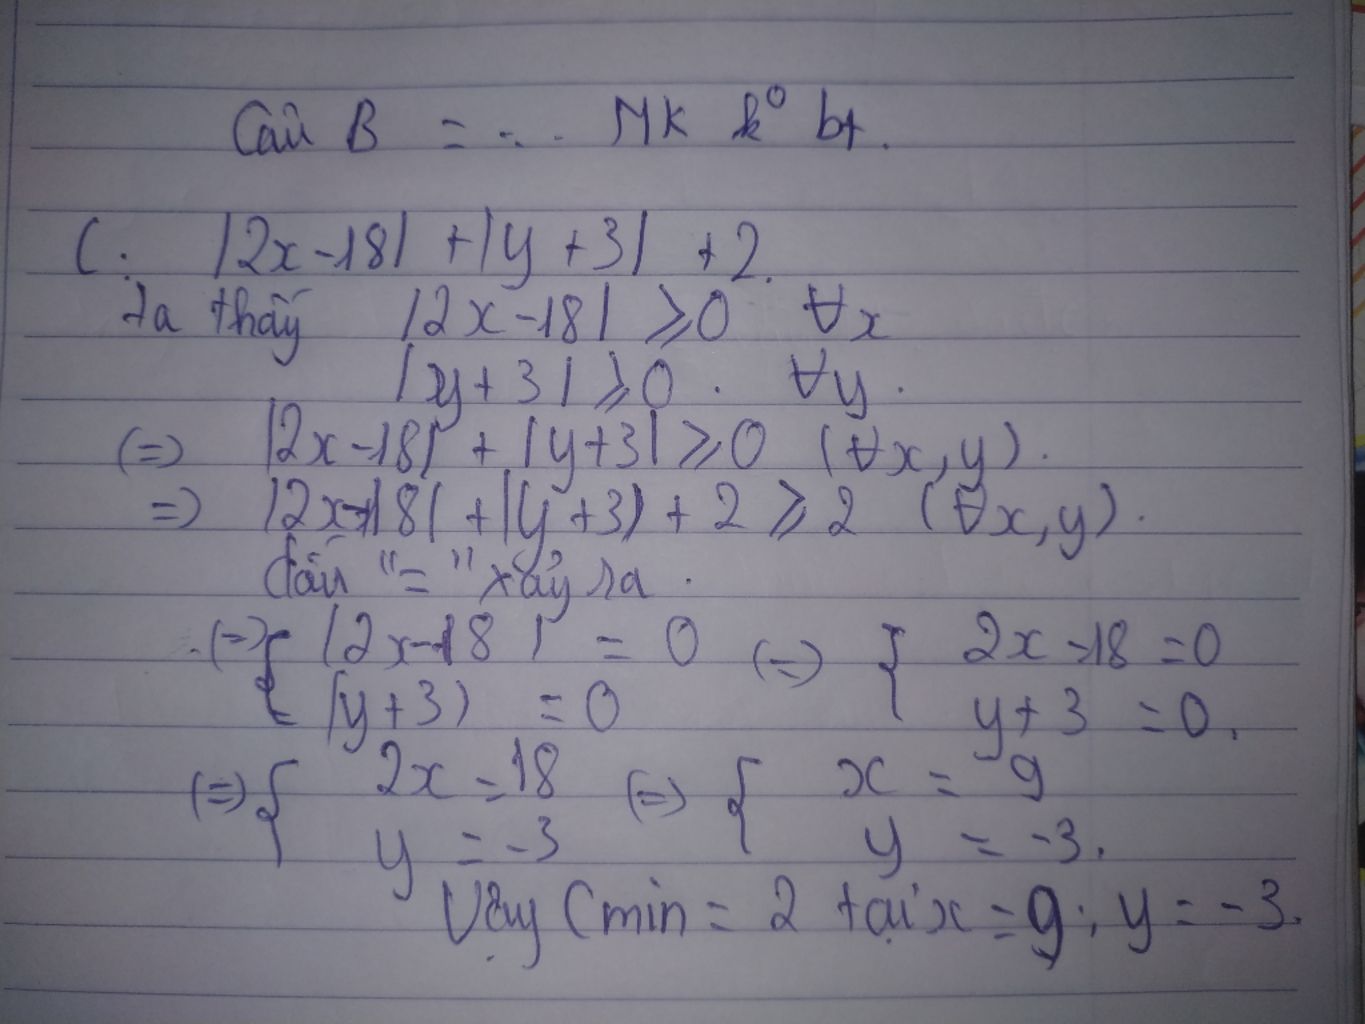 Câu B = ... Mk k° bt.
C: |2x-18| + |y+3| +2.
Ta thấy |2x-18| ⩾0 ∀x
|y+3| ⩾0. ∀y.
(=) |2x-18| + |y+3| ⩾0 (∀x,y).
=) |2x-18| + |y+3| + 2 ⩾ 2 (∀x,y).
dấu "=" xảy ra.
(=) { |2x-18| = 0 (=) { 2x-18 =0
(y+3) =0 y+3 =0.
(=) { 2x =18 (=) { x = 9
y = -3 y = -3.
Vậy Cmin = 2 tại x = 9; y = -3.